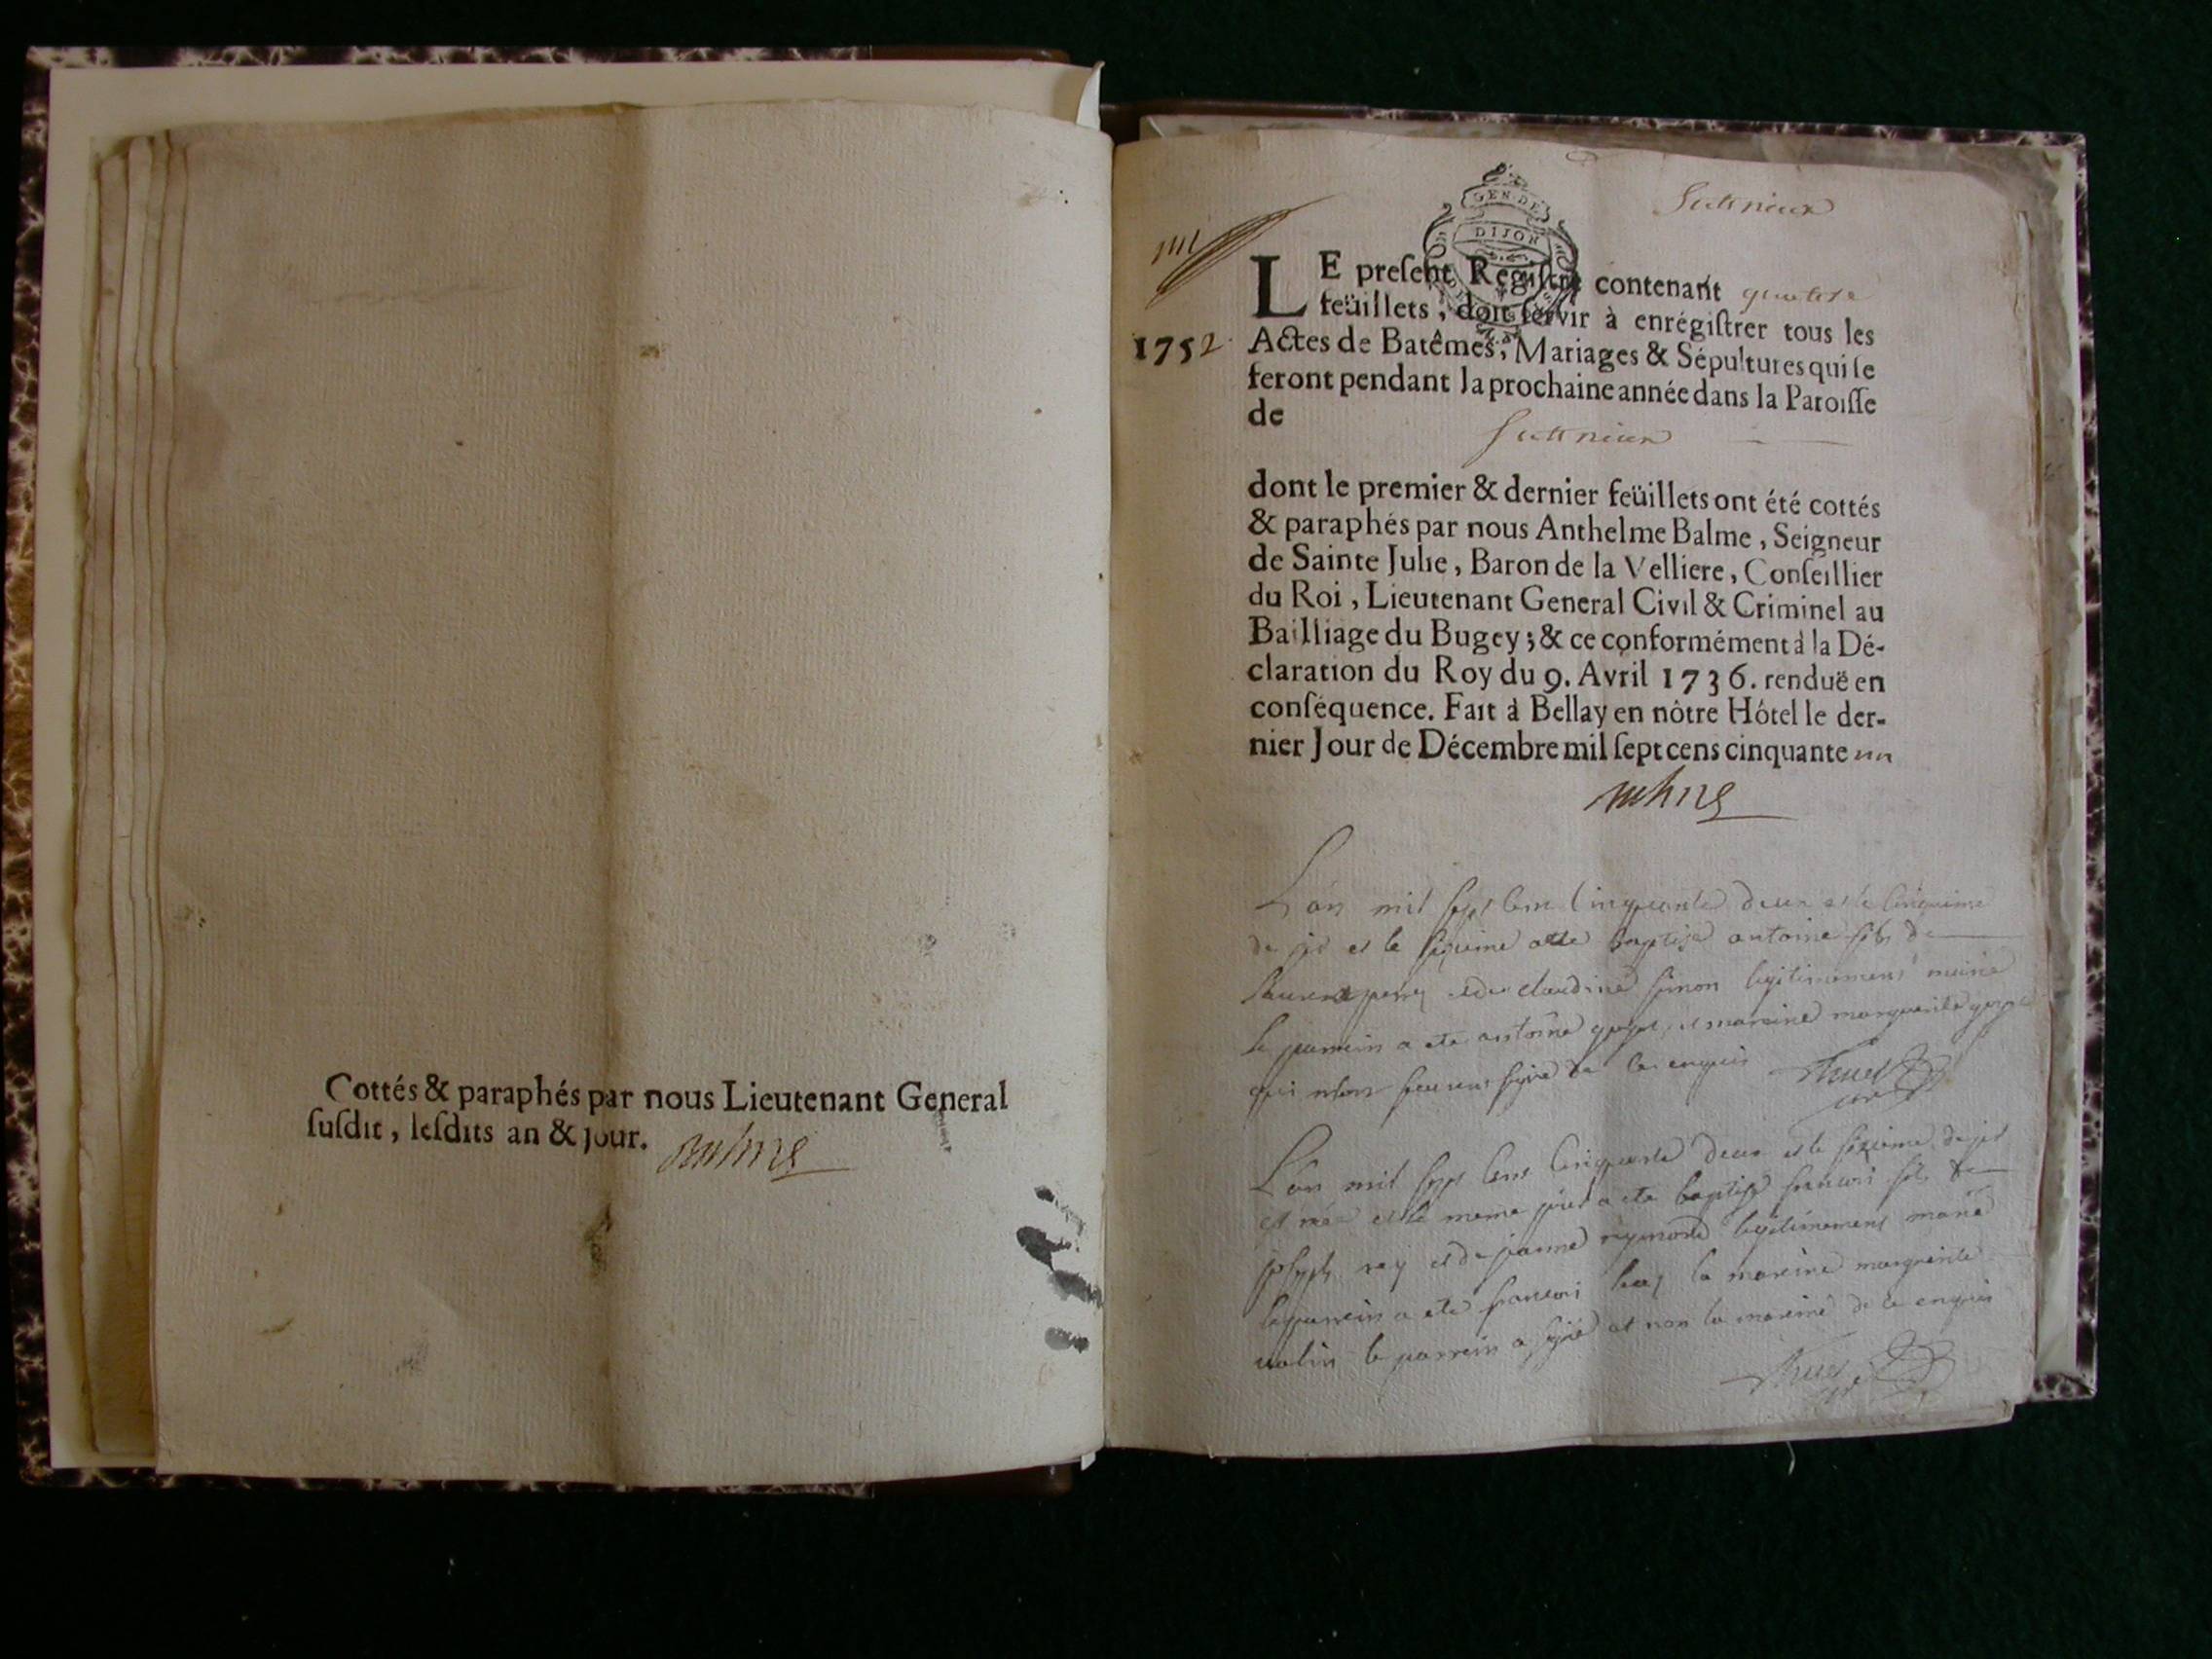 Cottés & paraphés par nous Lieutenant General
ſuſdit, leſdits an & jour.
Suttrieux
GEN. DE
DIJON
LE preſent Regiſtre contenant quatre
feüillets, doit ſervir à enrégiſtrer tous les
1752. Actes de Batêmes, Mariages & Sépultures qui ſe
feront pendant la prochaine année dans la Paroiſſe
de
Suttrieux
dont le premier & dernier feüillets ont été cottés
& paraphés par nous Anthelme Balme, Seigneur
de Sainte Julie, Baron de la Velliere, Conſeillier
du Roi, Lieutenant General Civil & Criminel au
Bailliage du Bugey; & ce conformément à la Dé-
claration du Roy du 9. Avril 1736. renduë en
conſéquence. Fait à Bellay en nôtre Hôtel le der-
nier Jour de Décembre mil ſept cens cinquante un
L'an mil sept cens cinquante deux et le cinquieme
de et le sixieme a ete baptisé antoine fils de
perry et de claudine simon legitimement marié
le parrein a ete antoine et mareine marguerite
qui n'ont signé de ce enquis
L'an mil sept cens cinquante deux et le sixieme de
est né et le meme jour a ete baptisé francois fils de
joseph rey et de jeanne reymond legitimement marié
le parrein a ete francois la mareine marguerite
le parrein a signé et non la mareine de ce enquis